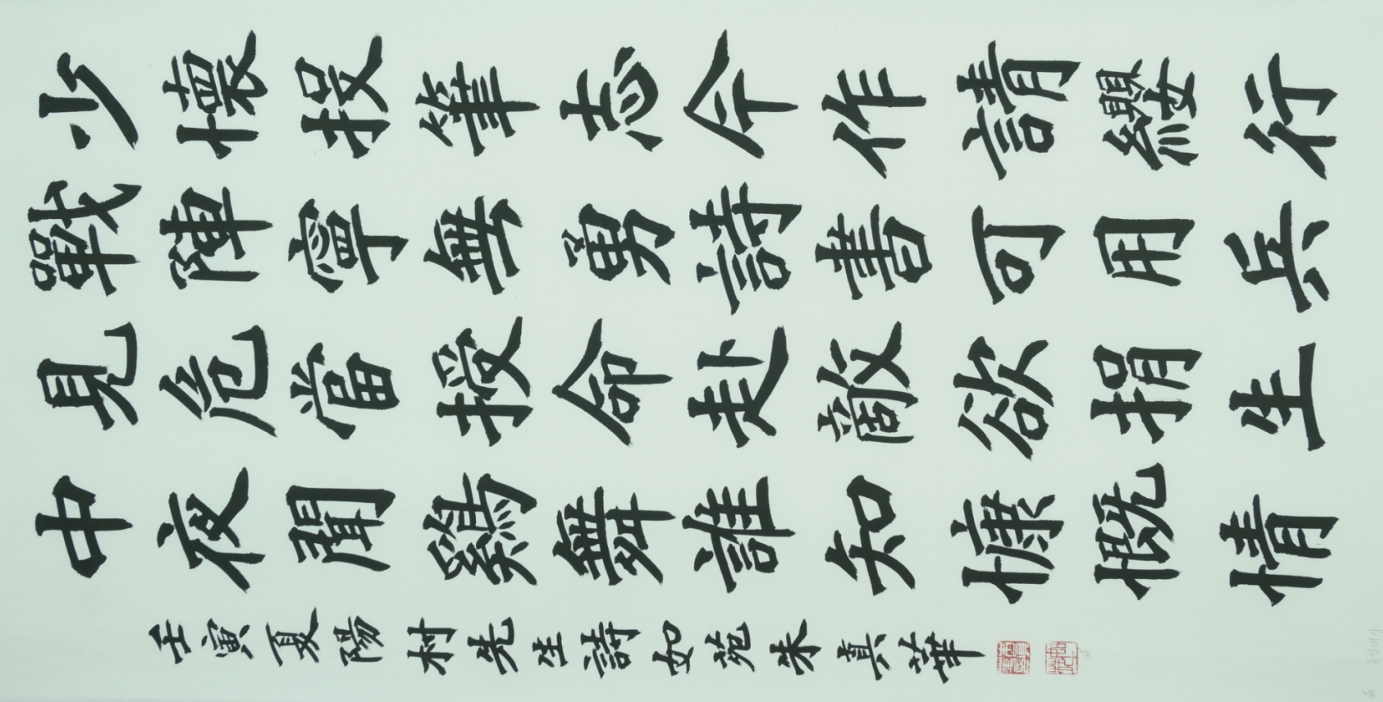 少懷投筆志今作請纓行
戰陣寧無勇詩書可用兵
見危當授命赴敵欲捐生
中夜聞鷄舞誰知慷慨情
壬寅夏陽村先生詩如苑朱真華